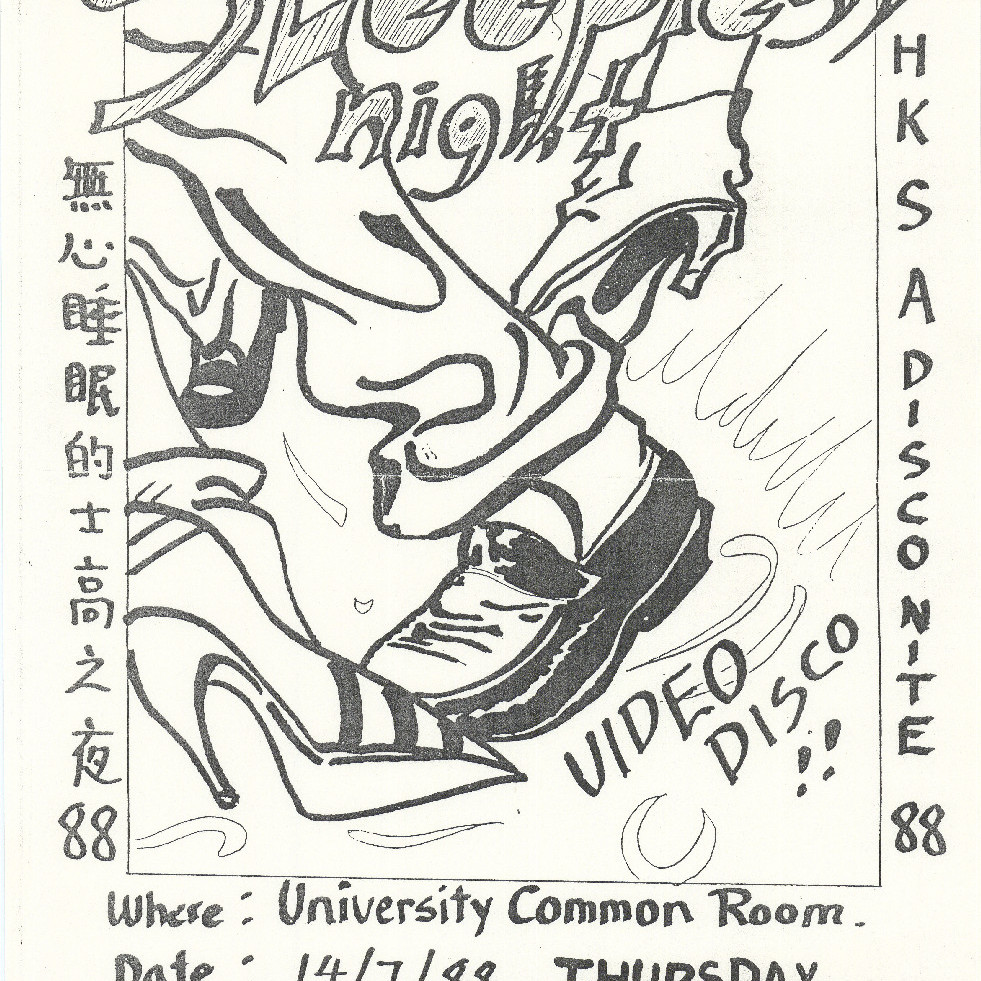 Sleepless
night
無心睡眠的士高之夜 88
HKSA DISCO NITE 88
VIDEO
DISCO
!!
Where: University Common Room.
Date: 14/7/88 THURSDAY